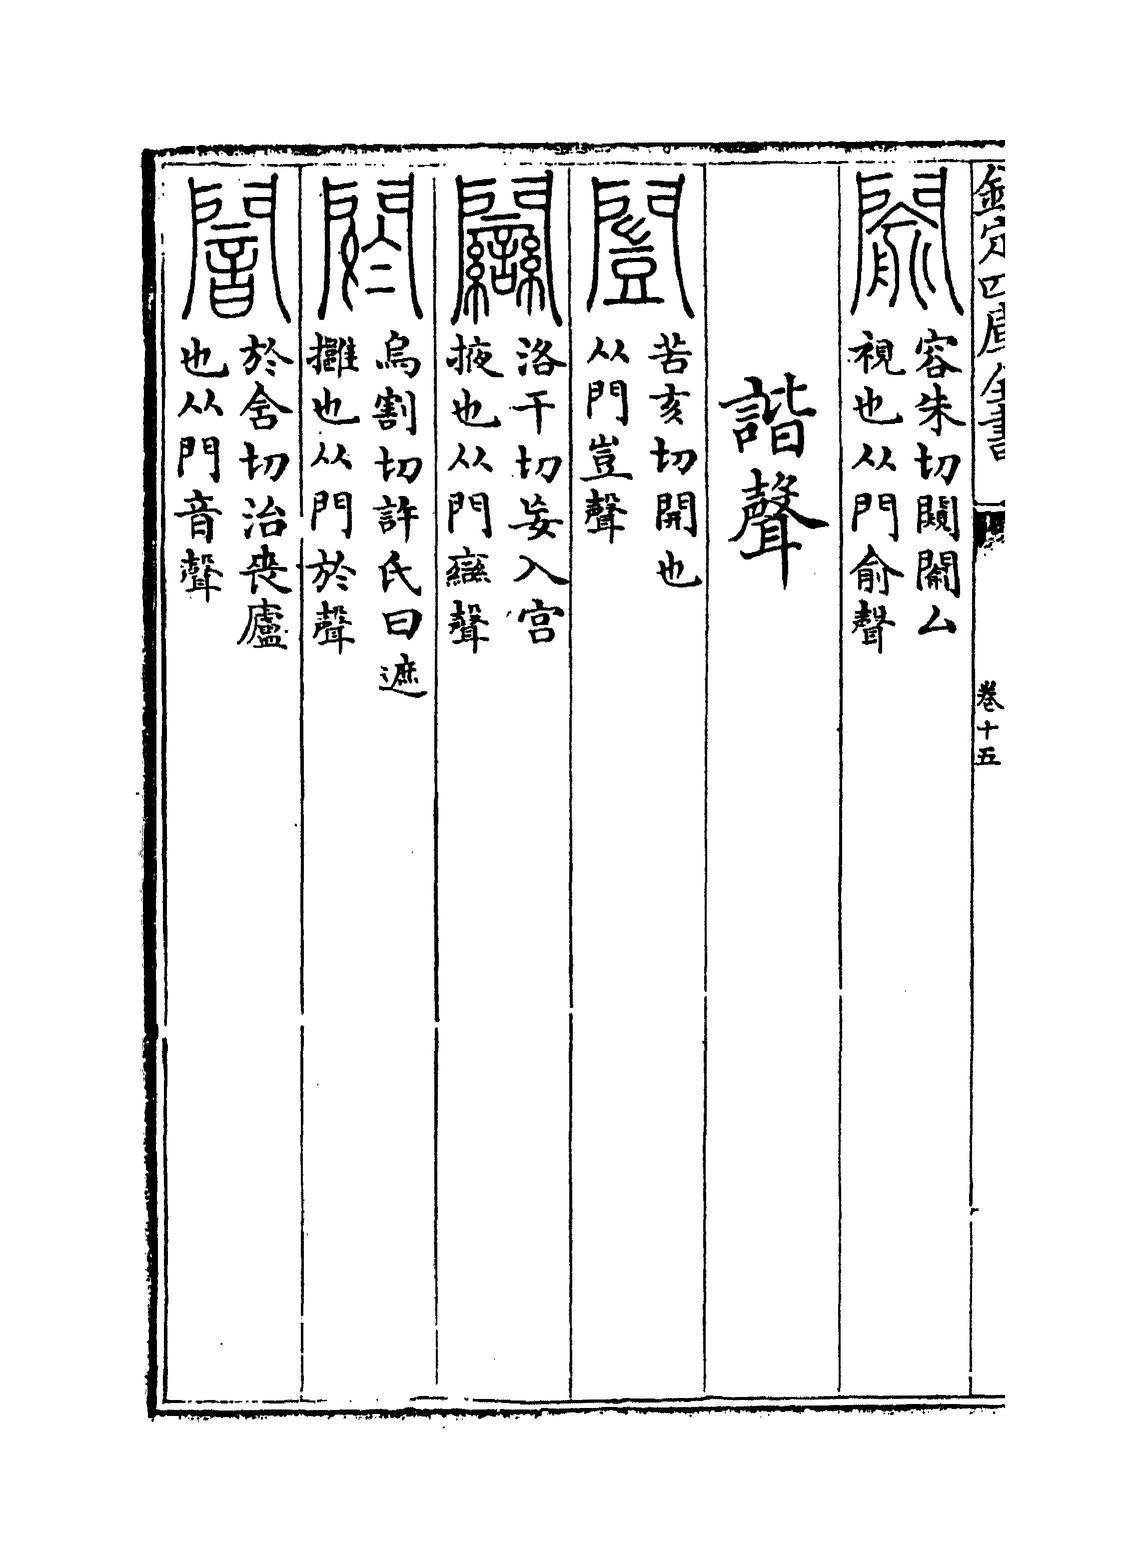 欽定四庫全書
卷十五
闟 容朱切闚闝厶
視也从門俞聲
諧聲
闓 苦亥切開也
从門豈聲
闌 洛干切妄入宫
掖也从門䜌聲
閼 烏割切許氏曰遮
攤也从門於聲
闇 於舍切治喪廬
也从門音聲